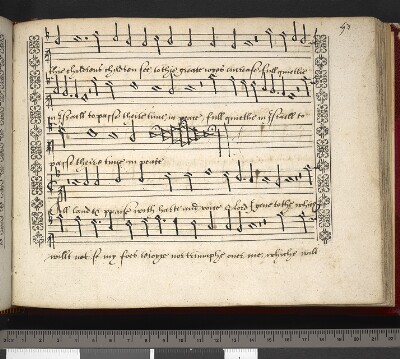 thie childrens children see to thy greate ioyes increase full quietlie
in Israell to passe theire time in peace, full quietlie in Israell to
passe theire time in peace
I lande to praise with harte and voice O Lord I geue to the which
wilt not se my foes reioyce nor triumphe ouer me, whiche will